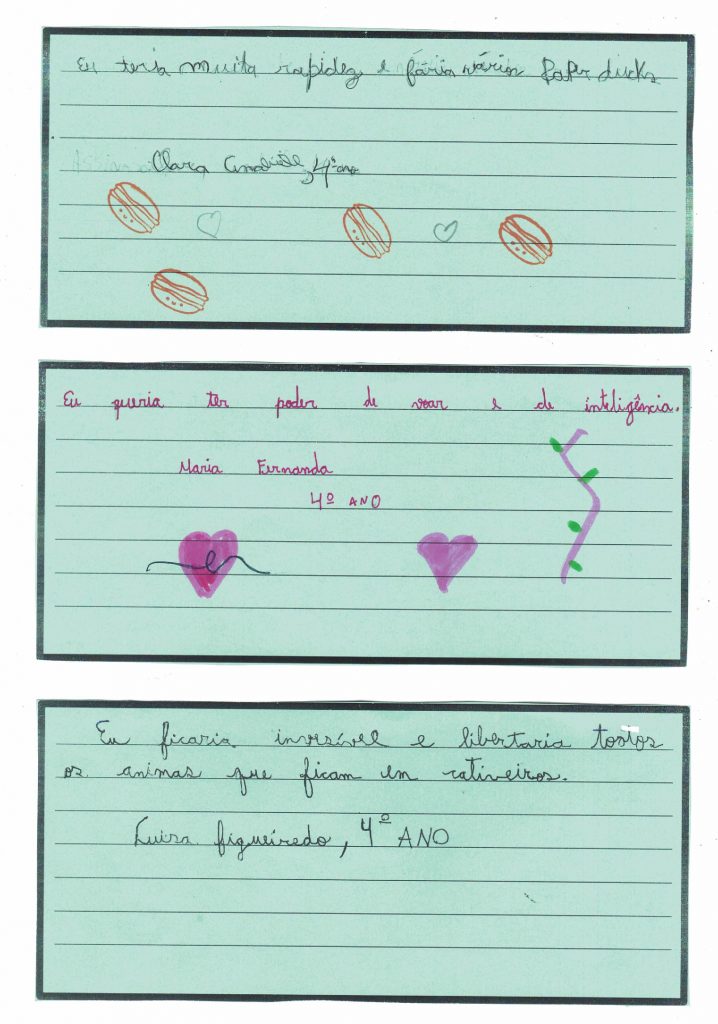 Eu teria muita rapidez e fária vários Paper ducks
Clara 4º ano
Eu queria ter poder de voar e de inteligência.
Maria Fernanda
4º ANO
Eu ficaria invisível e libertaria tostos
os animas que ficam em cativeiros.
Luisa figueiredo, 4º ANO